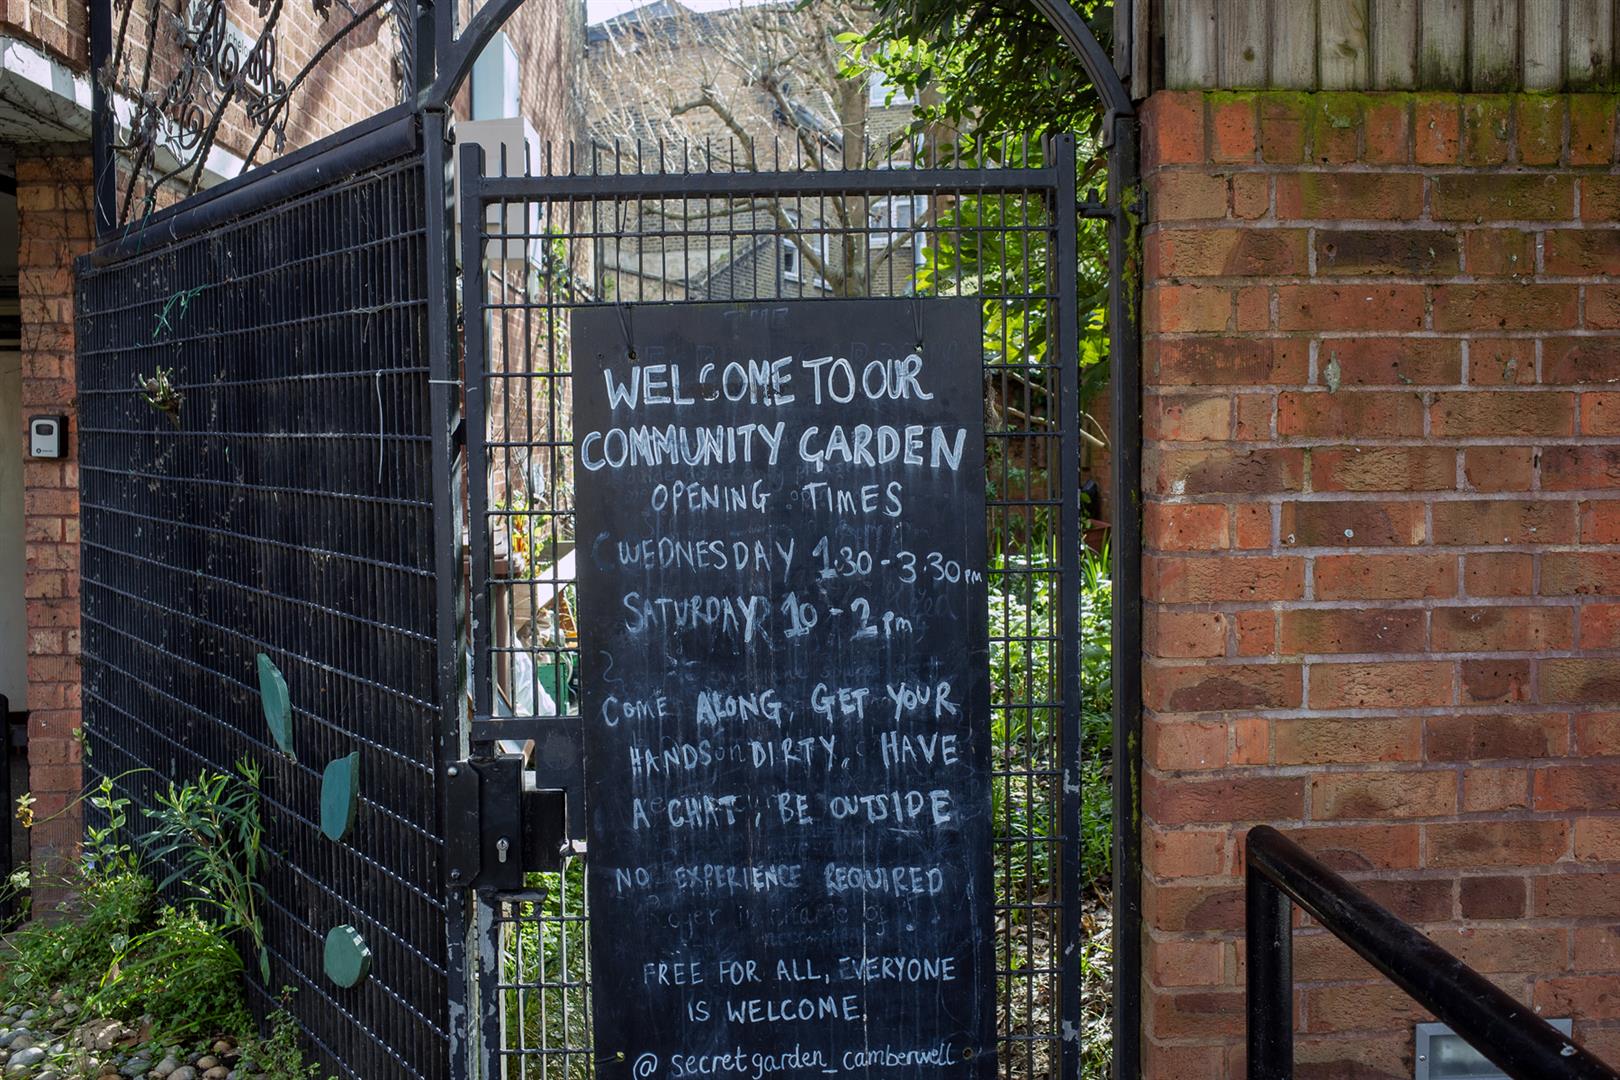 THE
WELCOME TO OUR
COMMUNITY GARDEN
OPENING TIMES
WEDNESDAY 1.30 - 3.30pm
SATURDAY 10 - 2pm
COME ALONG, GET YOUR
HANDS DIRTY, HAVE
A CHAT, BE OUTSIDE
NO EXPERIENCE REQUIRED
FREE FOR ALL, EVERYONE
IS WELCOME.
@secretgarden_camberwell